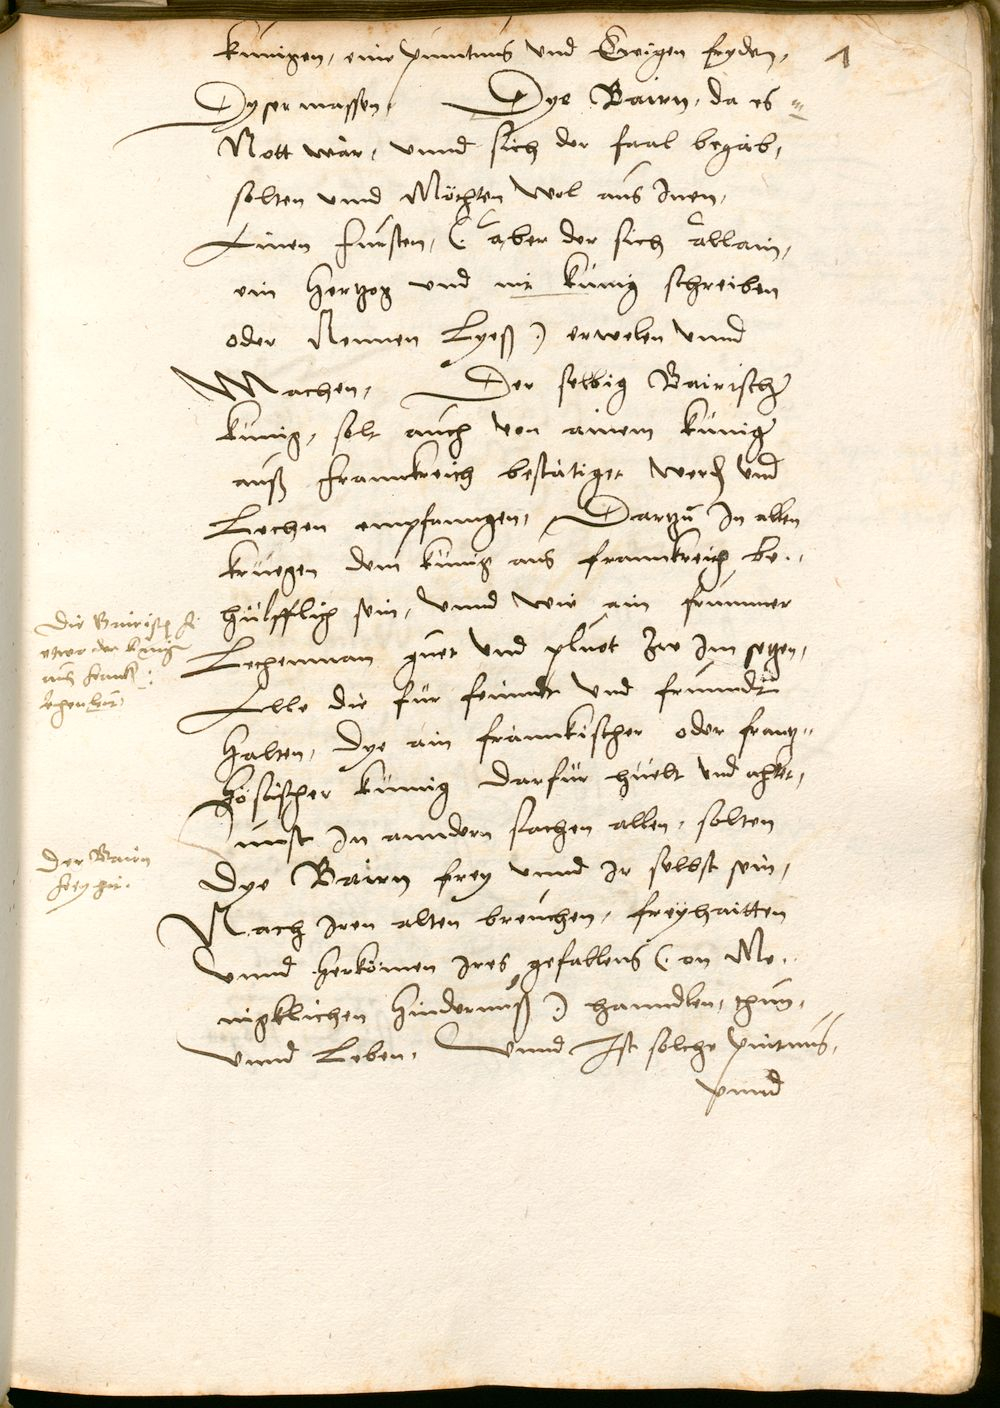 künigen, eine püntnus vnd Ewigen fryden, 1
Dyser massen, Dye Bairn, da es
Nott wär, vnnd sich der faal begäb,
solten vnnd Möchten wol aus Inen,
Ainen fürsten, (: aber der sich allain,
ein Hertzog vnd nit künig schreiben
oder Nennen Lyeß :) erwelen vnnd
Machen, Der selbig Bairisch
künig, solt auch von ainem künig
auß franckreich bestätiget werden vnd
Lechen empfanngen, Dartzu In allen
kriegen dem künig aus franckreich be-
hülfflich sein, vnnd wie ain frummer
Lechenman guet vnd pluet zu im setzen,
Alle die für feinndt vnd freundt
halten, Dye ain frännkischer oder frantz-
hösischer künig darfür huelt vnd achtet,
Sunst In anndern sachen allen, solten
Dye Bairn frey vnnd Ir selbst sein,
Nach Iren alten breuchen, freyhaitten
vnnd herkomen Ires gefallens (: on Me-
nigklichen hindernuß :) hanndlen, thun,
vnnd Leben, Vnnd Ist solche püntnus,
vnnd
Die Bairisch f.
etwo der künig
aus franck:
lehenleut
Der Bairn
freyhait.